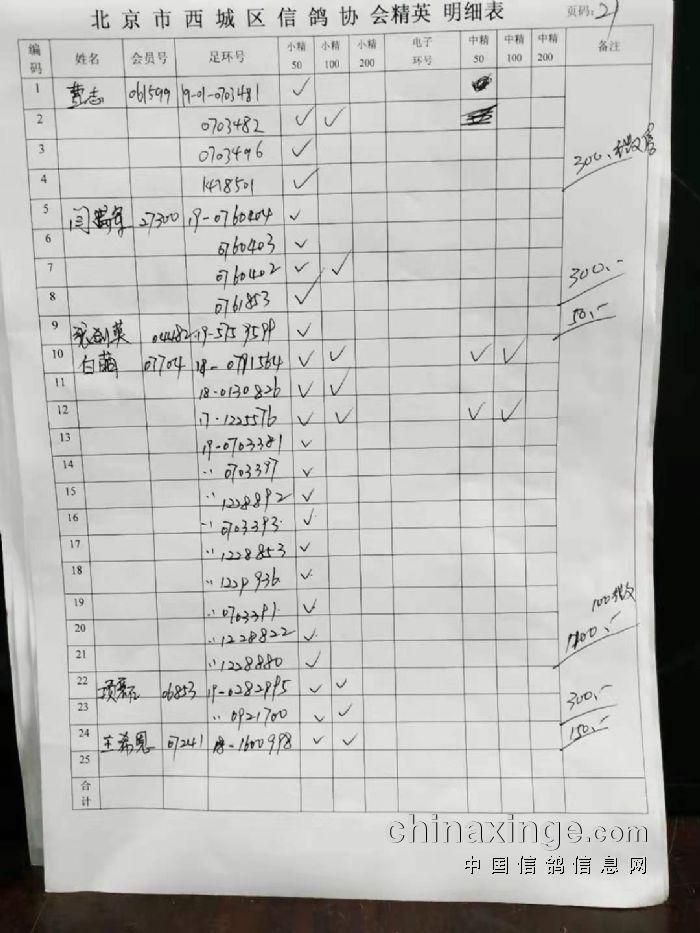 北京市西城区信鸽协会精英明细表 页码：21
编码 姓名 会员号 足环号 小精50 小精100 小精200 电子环号 中精50 中精100 中精200 备注
1 061599 19-01-0703481 ✓
2 0703482 ✓ ✓
3 0703496 ✓
4 1478501 ✓ 300
5 27300 19-0760404 ✓
6 0760403 ✓
7 0760402 ✓ ✓
8 0761853 ✓ 300.-
9 04482 19-5759599 ✓ 50.-
10 白 07704 18-0791564 ✓ ✓ ✓ ✓
11 18-0130826 ✓ ✓
12 17-1225576 ✓ ✓ ✓ ✓
13 19-0703381 ✓
14 〃 0703397 ✓
15 〃 1228892 ✓
16 〃 0703393 ✓
17 〃 1228853 ✓
18 〃 1229936 ✓
19 〃 0703391 ✓
20 〃 1228822 ✓ 100
21 〃 1228880 ✓
22 06853 19-0282995 ✓ ✓
23 〃 0921700 ✓ ✓ 300.-
24 王希恩 07241 18-1600998 ✓ ✓ 150.-
25
合计
chinaxinge.com
中国信鸽信息网